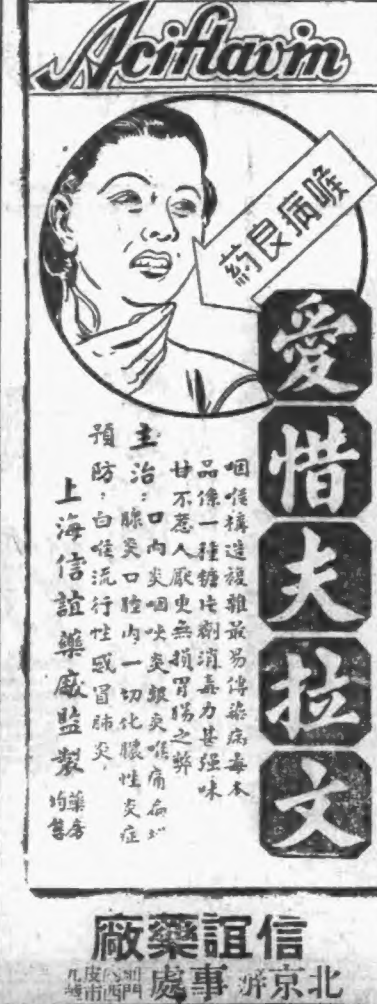 Aciflavin
喉病良葯
愛惜夫拉文
咽喉構造複雜最易傳染病毒本
品係一種糖片劑消毒力甚强味
甘不惹人厭更無損胃腸之弊
主治：口內炎咽峽炎齦炎喉痛扁桃
腺炎口腔內一切化膿性炎症
預防：白喉流行性感冒肺炎，
上海信誼藥廠監製 藥房均售
信誼藥廠
北京辦事處 門內西皮市九號